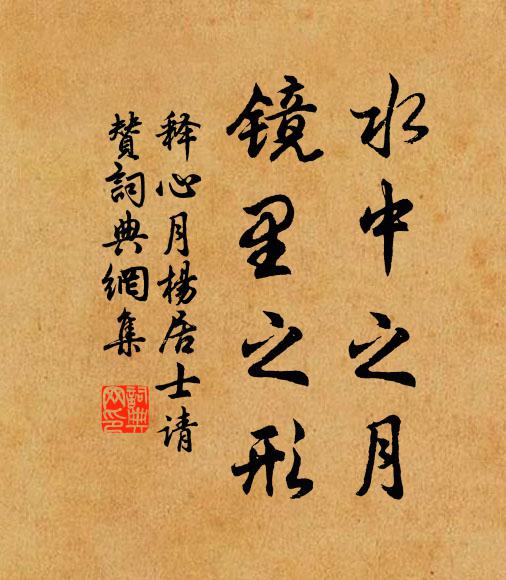 水中之月
镜里之形
释心月杨居士请
赞詞典網集
詞典網印